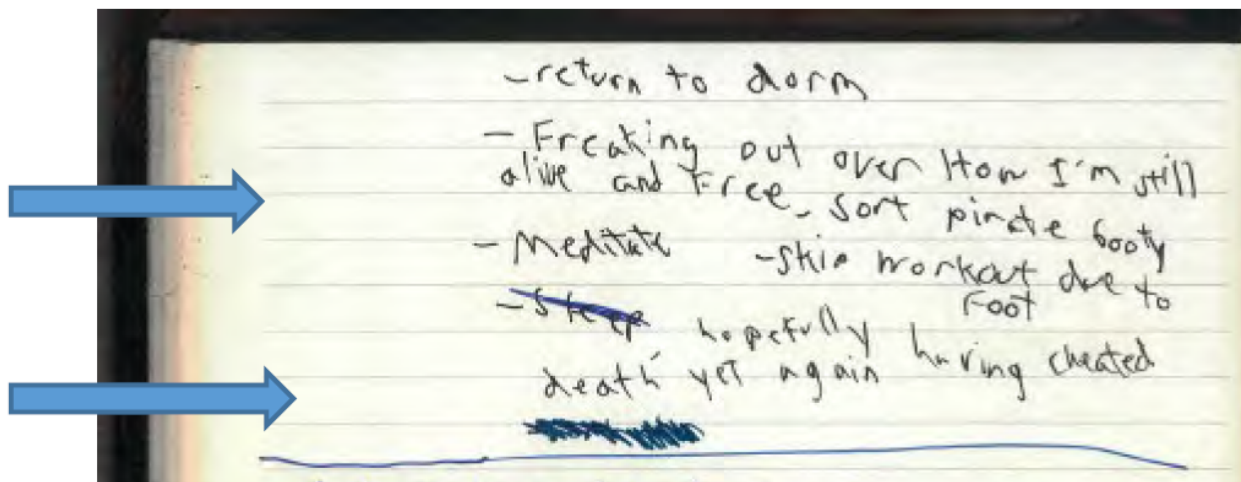 -return to dorm
-Freaking out over How I'm still
alive and Free, sort pirate booty
-Meditate -skip workout due to
Foot
-Sleep hopefully having cheated
death yet again